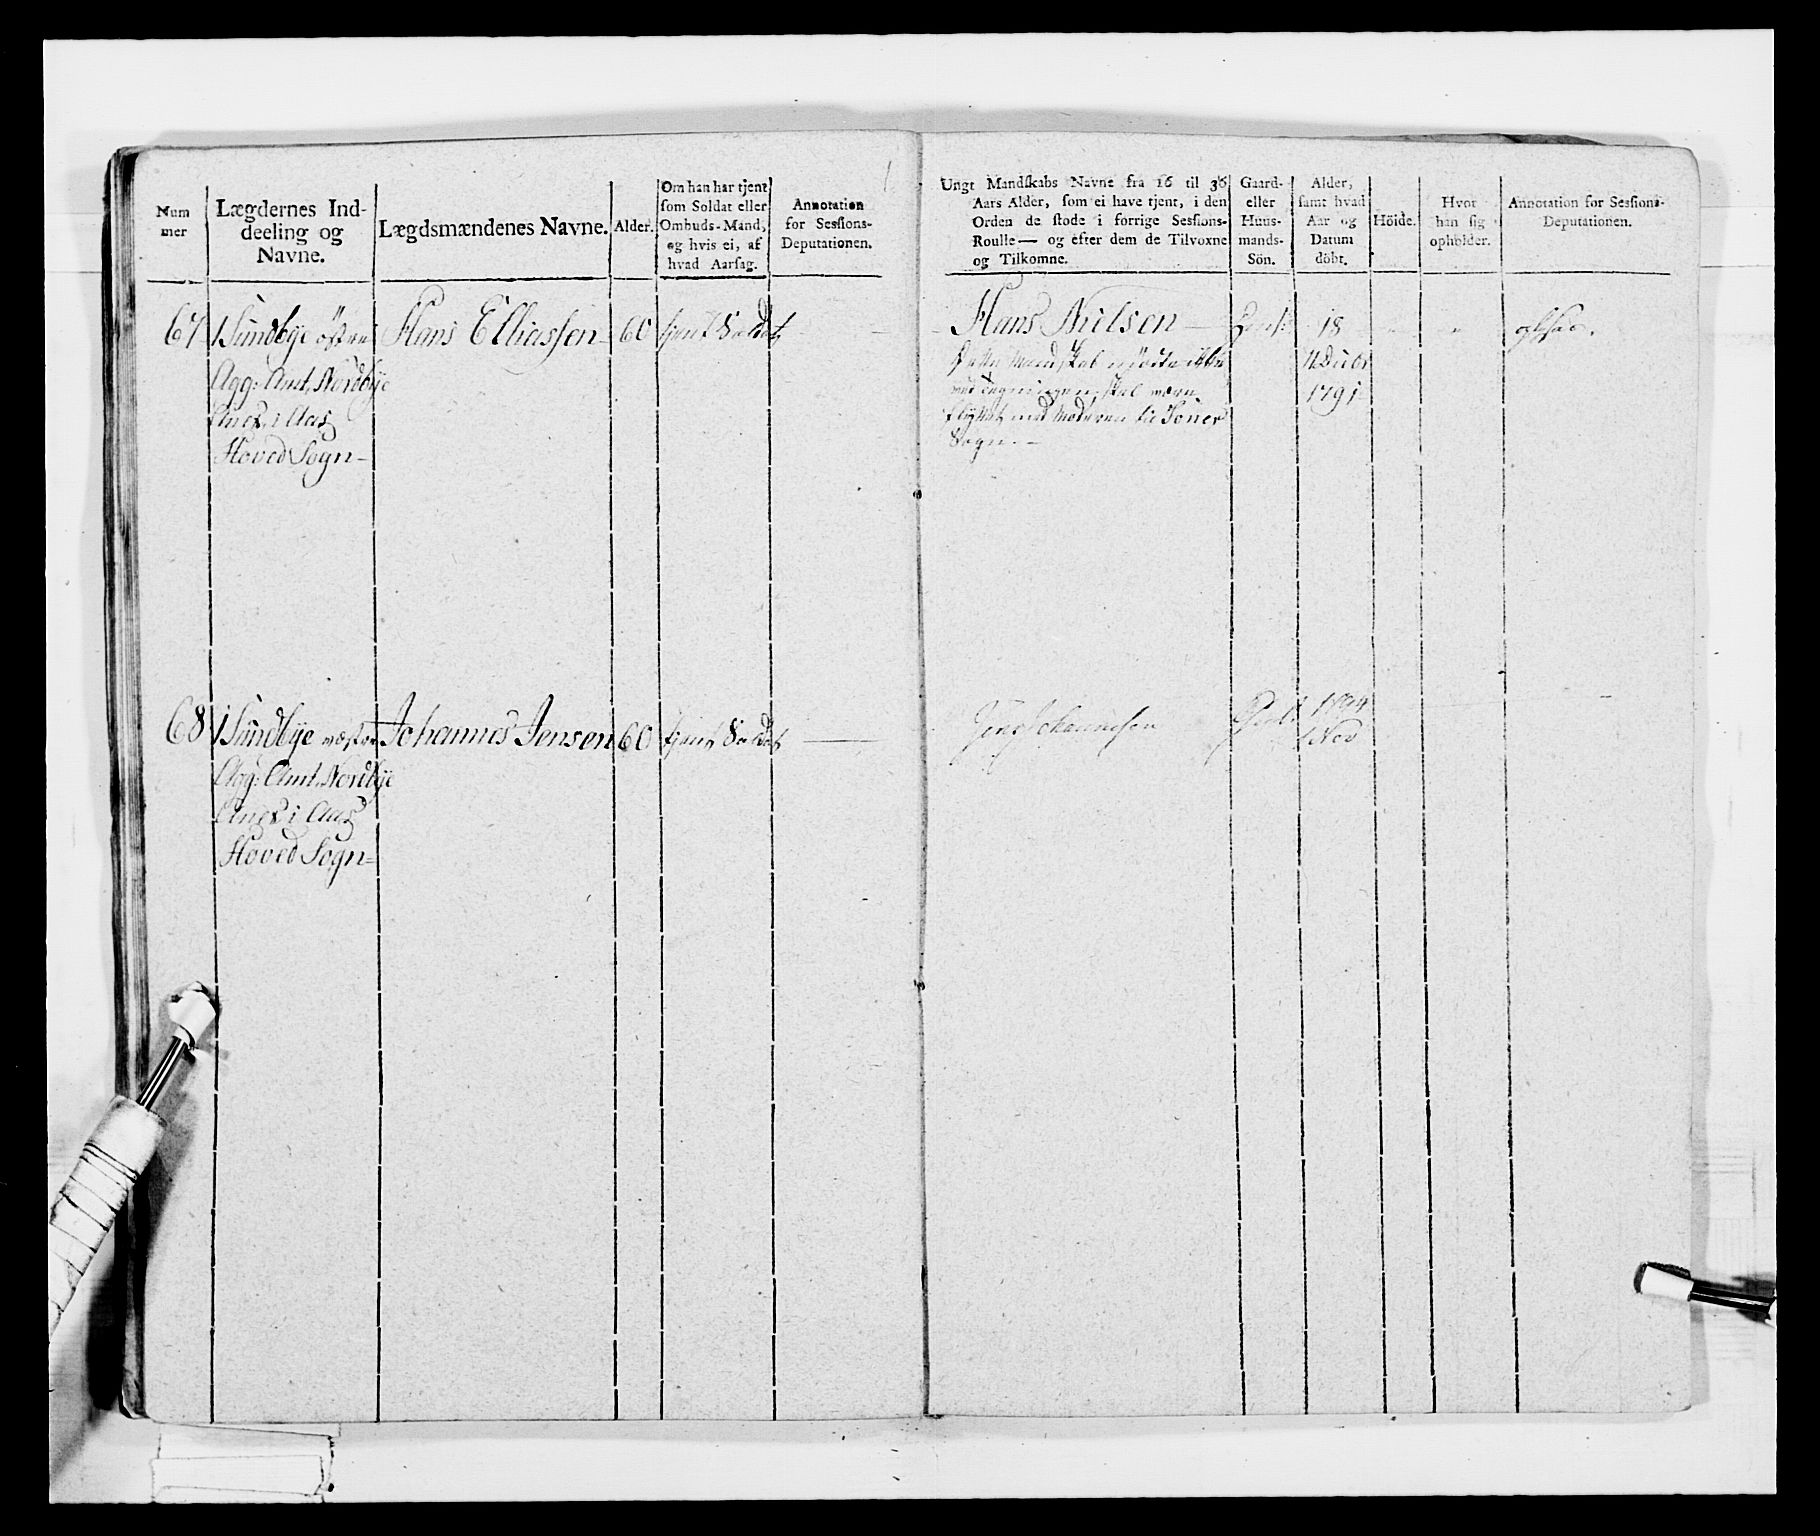 Num
mer
Lægdernes Ind-
deeling og
Navne.
Lægdsmændenes Navne.
Alder.
Om han har tjent
som Soldat eller
Ombuds-Mand,
og hvis ei, af
hvad Aarsag.
Annotation
for Sessions-
Deputationen.
67
1 Sundbye östre
Agg: Amt, Nordbye
Anex i Aas
Hoved Sogn
Hans Elliassen
60
tjent Soldat
68
1 Sundbye væstre
Agg: Amt, Nordbye
Anex i Aas
Hoved Sogn
Johannes Jensen
60
tjent Soldat
Ungt Mandskabs Navne fra 16 til 36
Aars Alder, som ei have tjent, i den
Orden de stode i forrige Sessions-
Roulle— og efter dem de Tilvoxne
og Tilkomne.
Gaard-
eller
Huus-
mands-
Sön.
Alder,
samt hvad
Aar og
Datum
döbt.
Höide.
Hvor
han sig
opholder.
Annotation for Sessions-
Deputationen.
Hans Nielsen
18
Dette Mandskab mödte ikke
ved Tegningen, skal være
flyttet med Moderen til Soner
Sogn.
1791
Jens Johannesen
1794
1 Nov